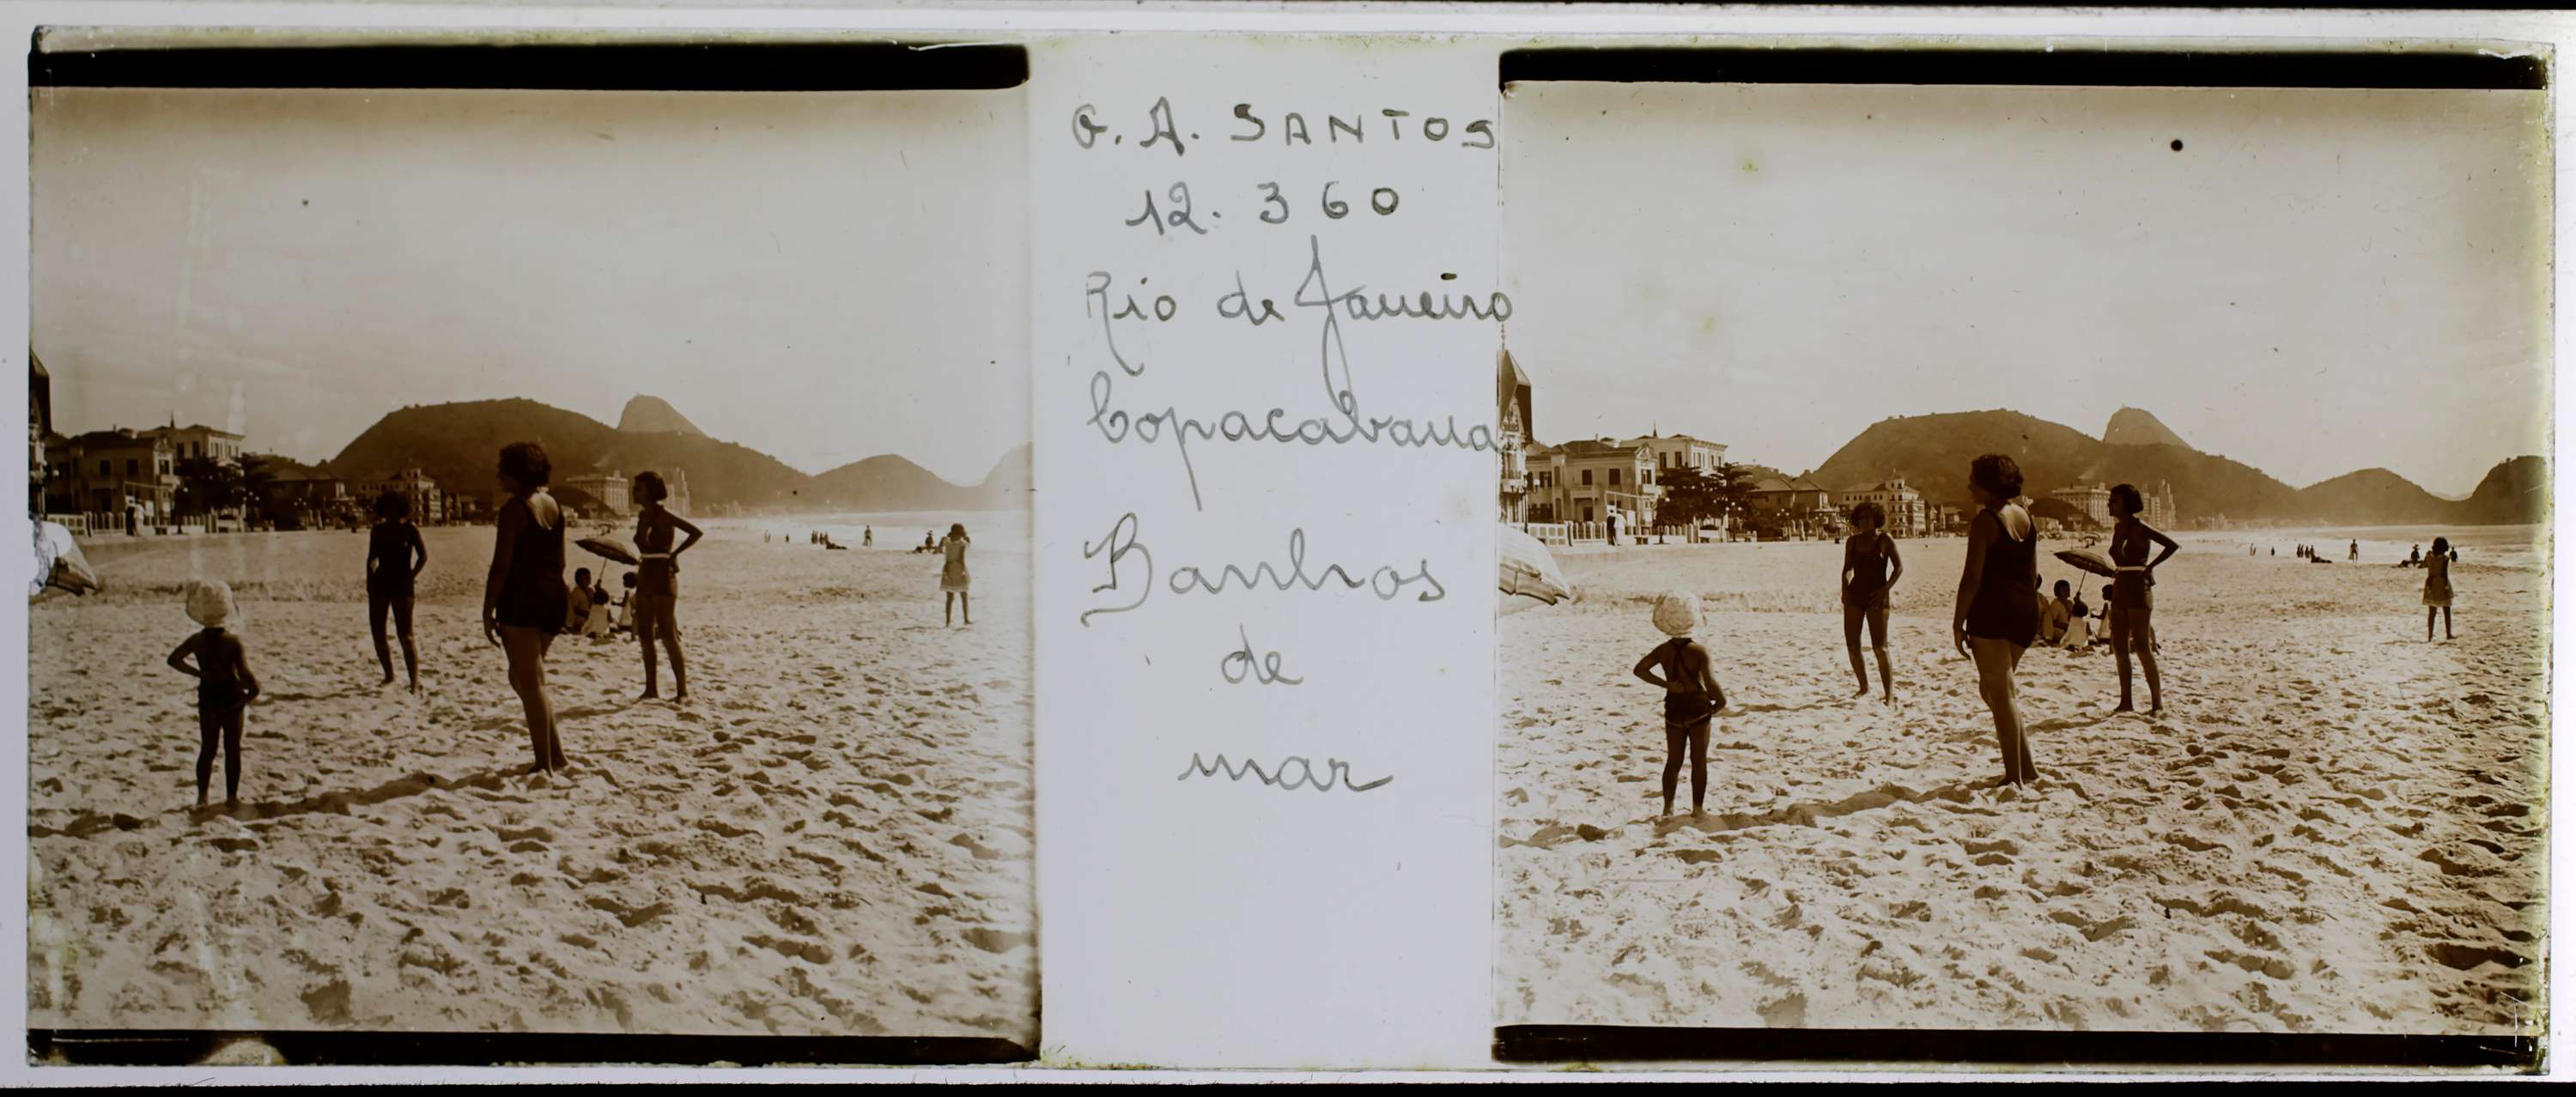 G. A. SANTOS
12. 360
Rio de Janeiro
Copacabana
Banhos
de
mar